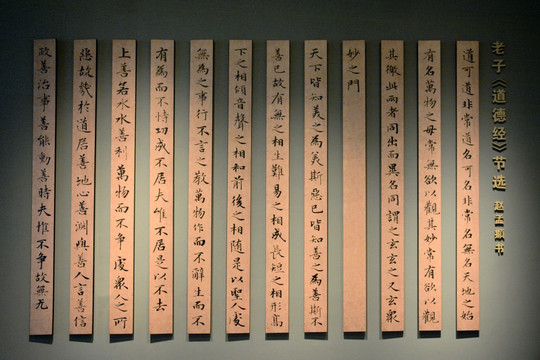 老子《道德经》节选 赵孟頫书
道可道非常道名可名非常名無名天地之始
有名萬物之母常無欲以觀其妙常有欲以觀
其徼此兩者同出而異名同謂之玄玄之又玄衆
妙之門
天下皆知美之為美斯惡已皆知善之為善斯不
善已故有無之相生難易之相成長短之相形髙
下之相傾音聲之相和前後之相随是以聖人處
無為之事行不言之教萬物作而不辭生而不
有為而不恃功成不居夫惟不居是以不去
上善若水水善利萬物而不争處衆人之所
惡故幾於道居善地心善淵與善人言善信
政善治事善能動善時夫惟不争故無尤